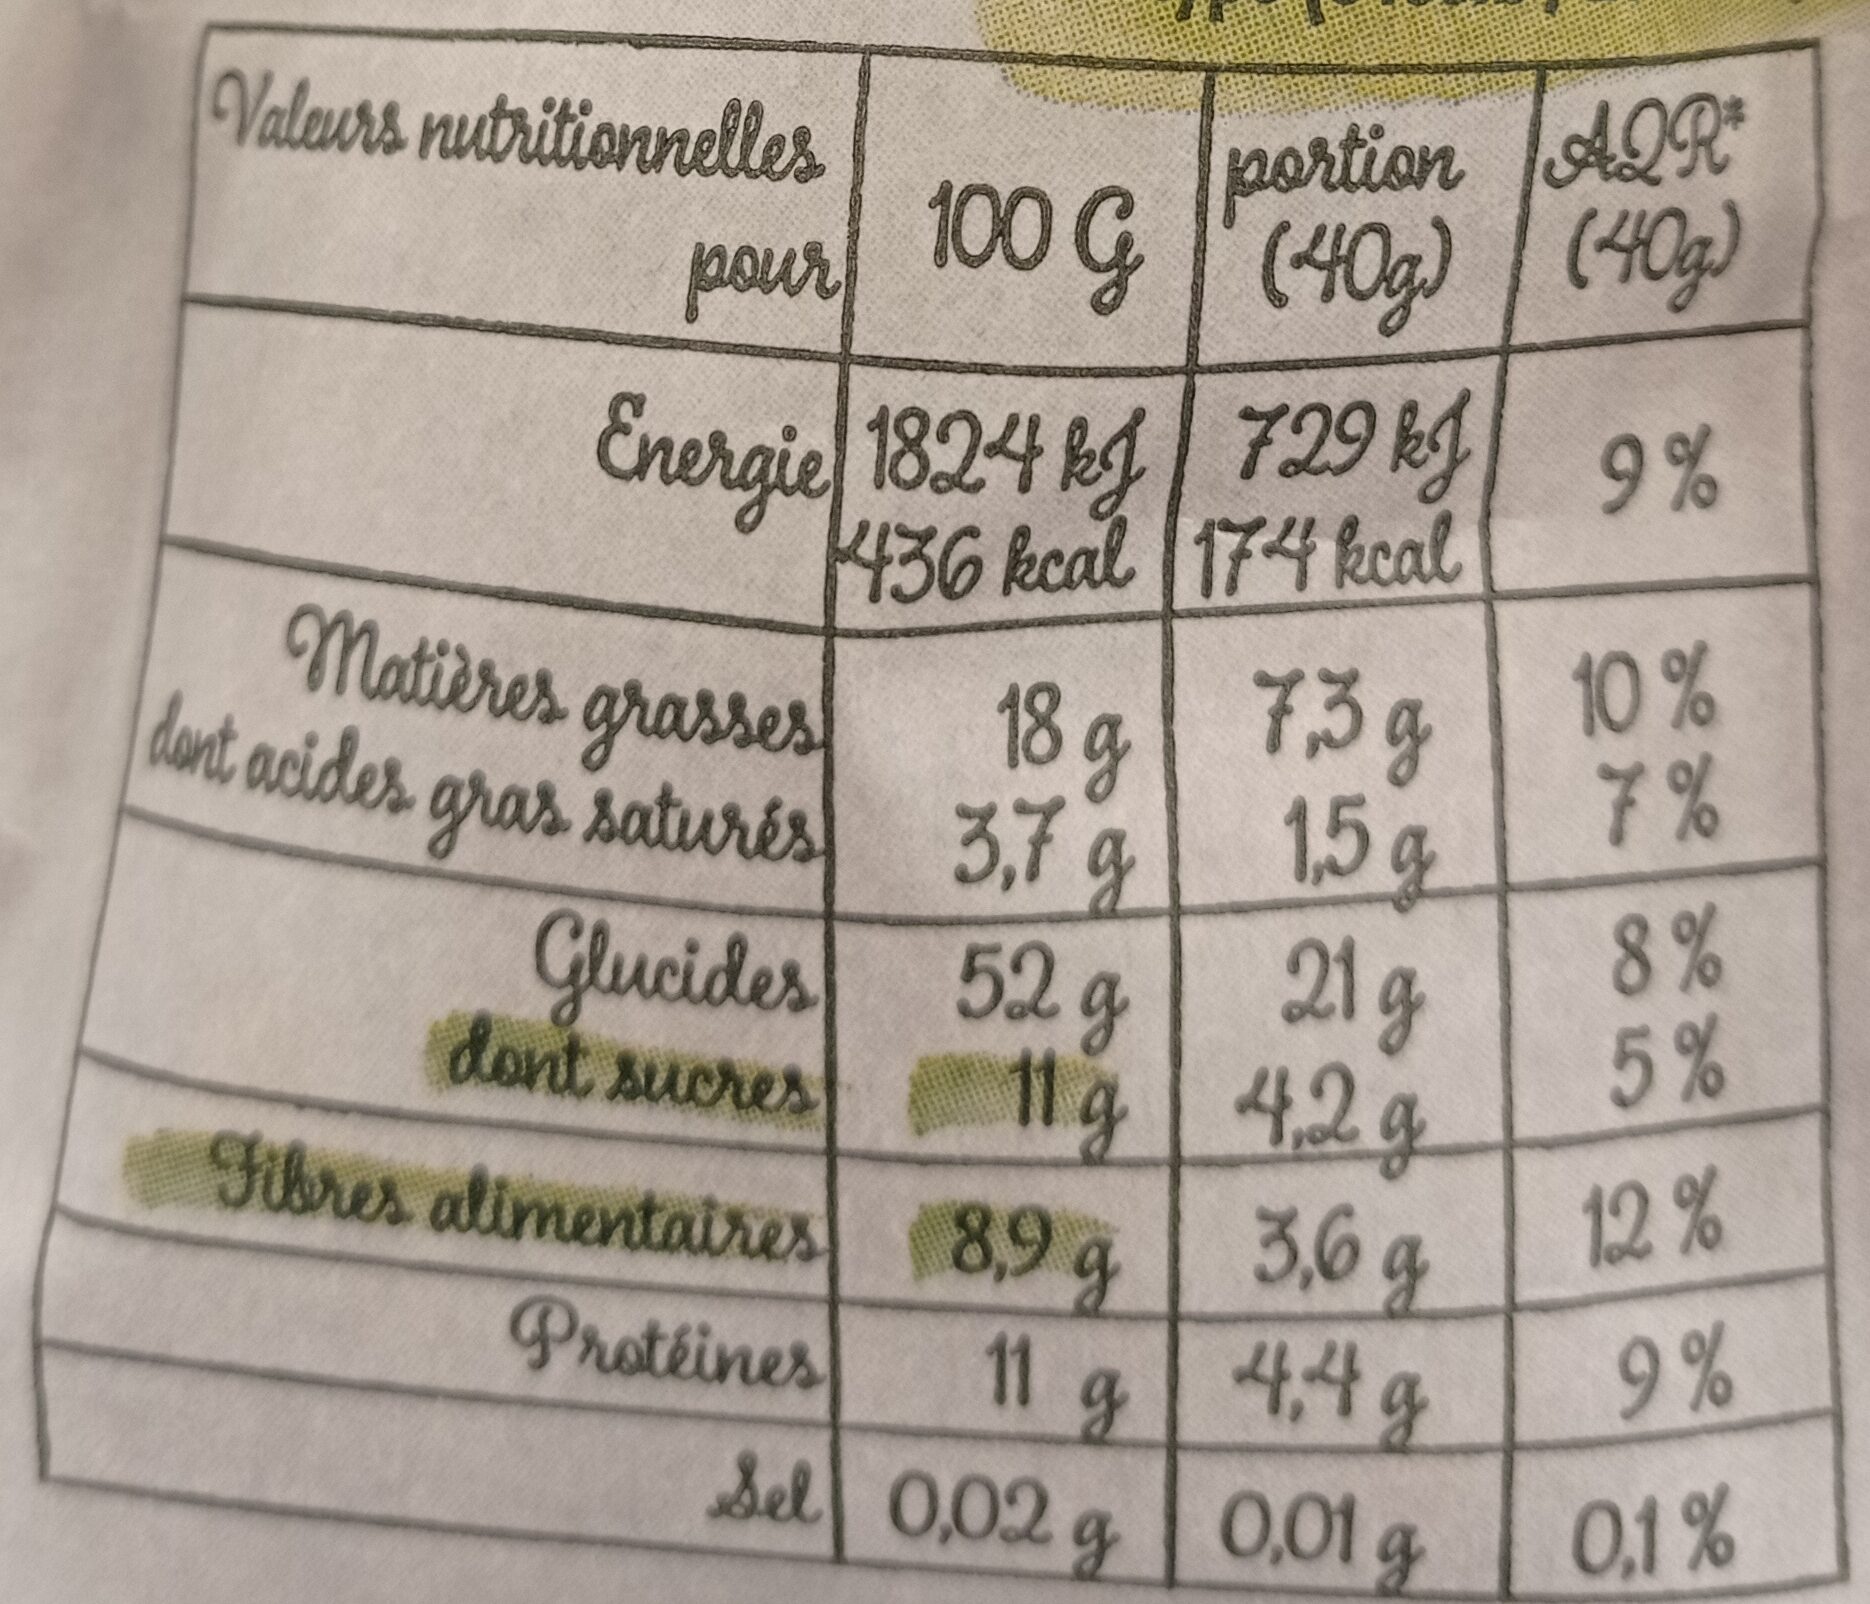 Valeurs nutritionnelles pour | 100 G | portion (40g) | AQR* (40g)
Energie | 1824 kJ 436 kcal | 729 kJ 174 kcal | 9 %
Matières grasses | 18 g | 7,3 g | 10 %
dont acides gras saturés | 3,7 g | 1,5 g | 7 %
Glucides | 52 g | 21 g | 8 %
dont sucres | 11 g | 4,2 g | 5 %
Fibres alimentaires | 8,9 g | 3,6 g | 12 %
Protéines | 11 g | 4,4 g | 9 %
Sel | 0,02 g | 0,01 g | 0,1 %